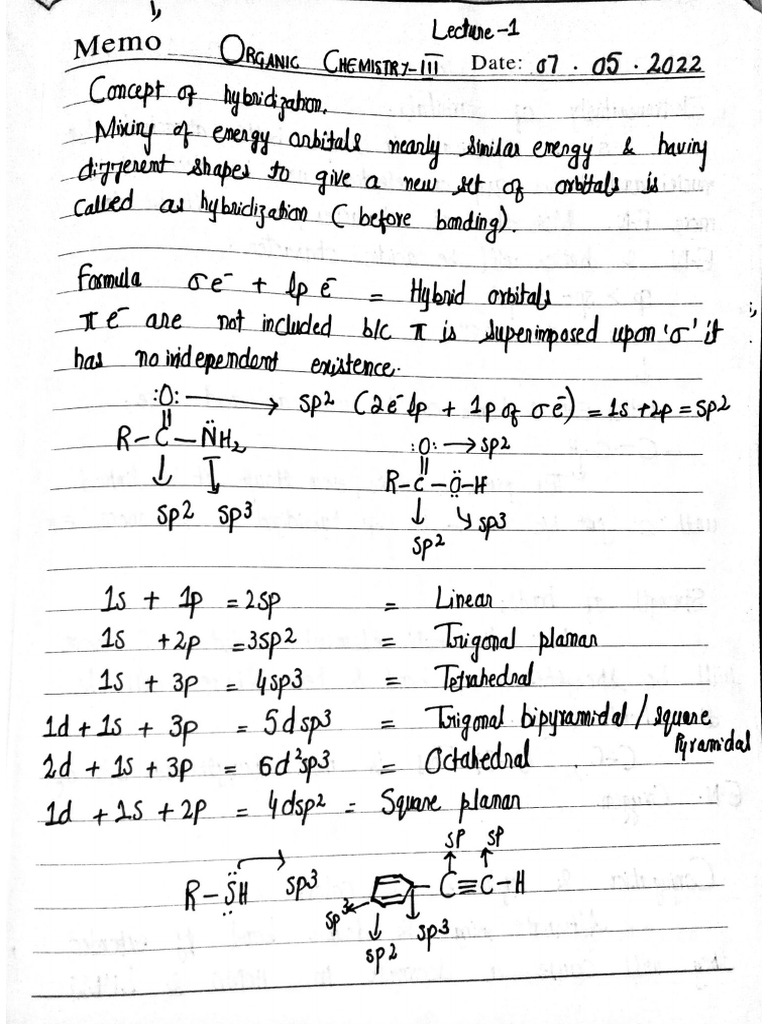 1,
Lecture-1
Memo ORGANIC CHEMISTRY-III Date: 07 . 05 . 2022
Concept of hybridization.
Mixing of energy orbitals nearly similar energy & having
different shapes to give a new set of orbitals is
called as hybridization (before bonding).
Formula σe⁻ + lp e⁻ = Hybrid orbitals
π e⁻ are not included b/c π is superimposed upon 'σ' it
has no independent existence.
:O: → sp2 (2e⁻ lp + 1p of σe⁻) = 1s +2p = sp2
R-C-N̈H₂
:O: → sp2
R-C-Ö-H
sp2 sp3
sp3
sp2
1s + 1p = 2sp = Linear
1s +2p = 3sp2 = Trigonal planar
1s + 3p = 4sp3 = Tetrahedral
1d + 1s + 3p = 5dsp3 = Trigonal bipyramidal / square
Pyramidal
2d + 1s + 3p = 6d²sp3 = Octahedral
1d + 1s + 2p = 4dsp2 = Square planar
sp sp
R-SH sp3
C≡C-H
sp3
sp2
sp3